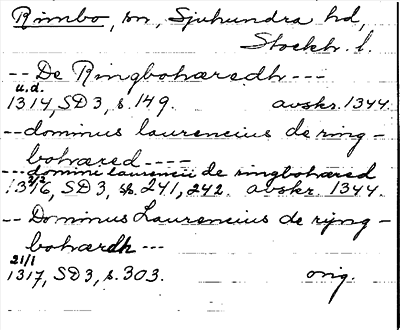 Rimbo, sn, Sjuhundra hd,
Stockh. l.
-- De Ringbohæredh ---
u.d.
1314, SD3, s. 149. avskr. 1344.
-- dominus laurencius de ring-
bohæred ----
--- domini laurencii de ringbohæred
1316, SD3, ss. 241, 242. avskr. 1344.
-- Dominus Laurencius de ryng-
bohærdh ---
21/1
1317, SD3, s. 303. orig.